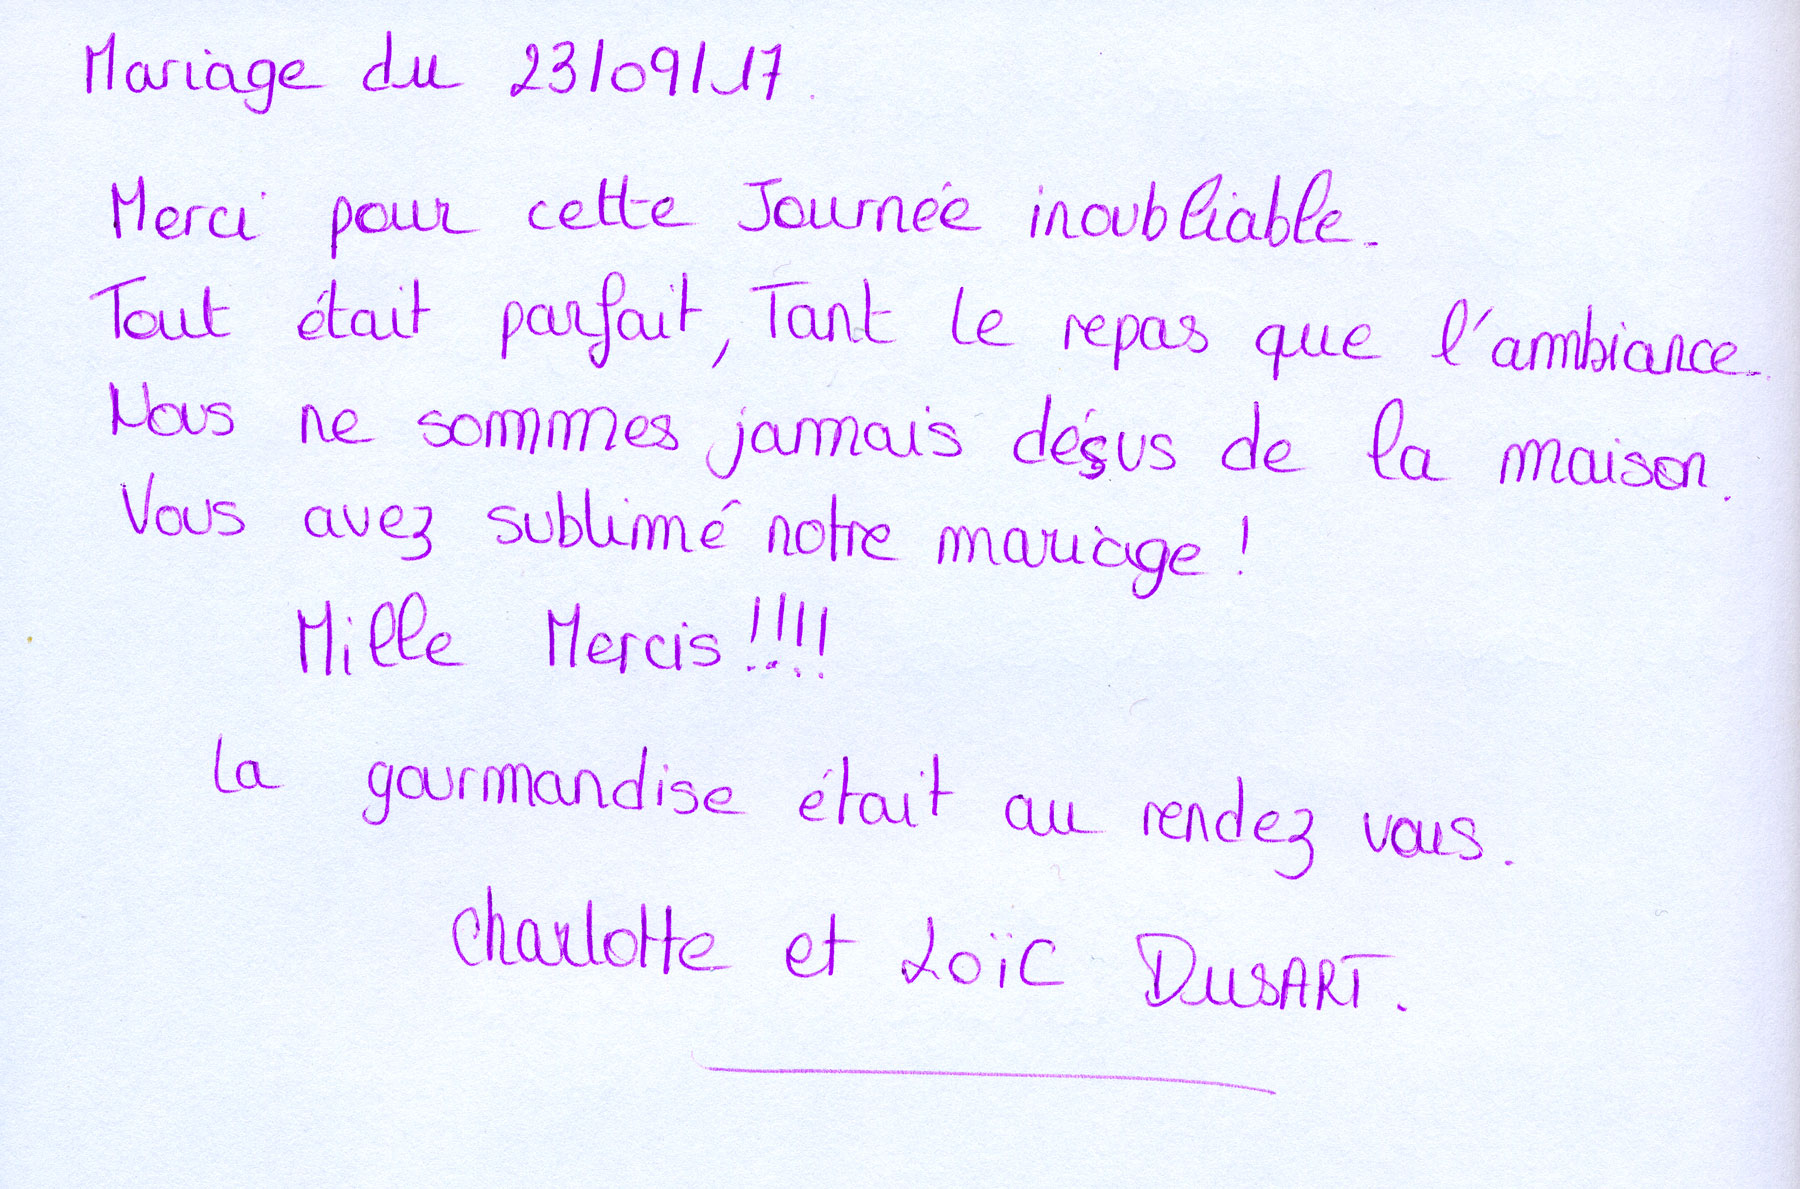 Mariage du 23/09/17.
Merci pour cette Journée inoubliable.
Tout était parfait, Tant le repas que l'ambiance.
Nous ne sommes jamais désus de la maison.
Vous avez sublimé notre mariage !
Mille Mercis !!!!
La gourmandise était au rendez vous.
Charlotte et Loïc DUSART.